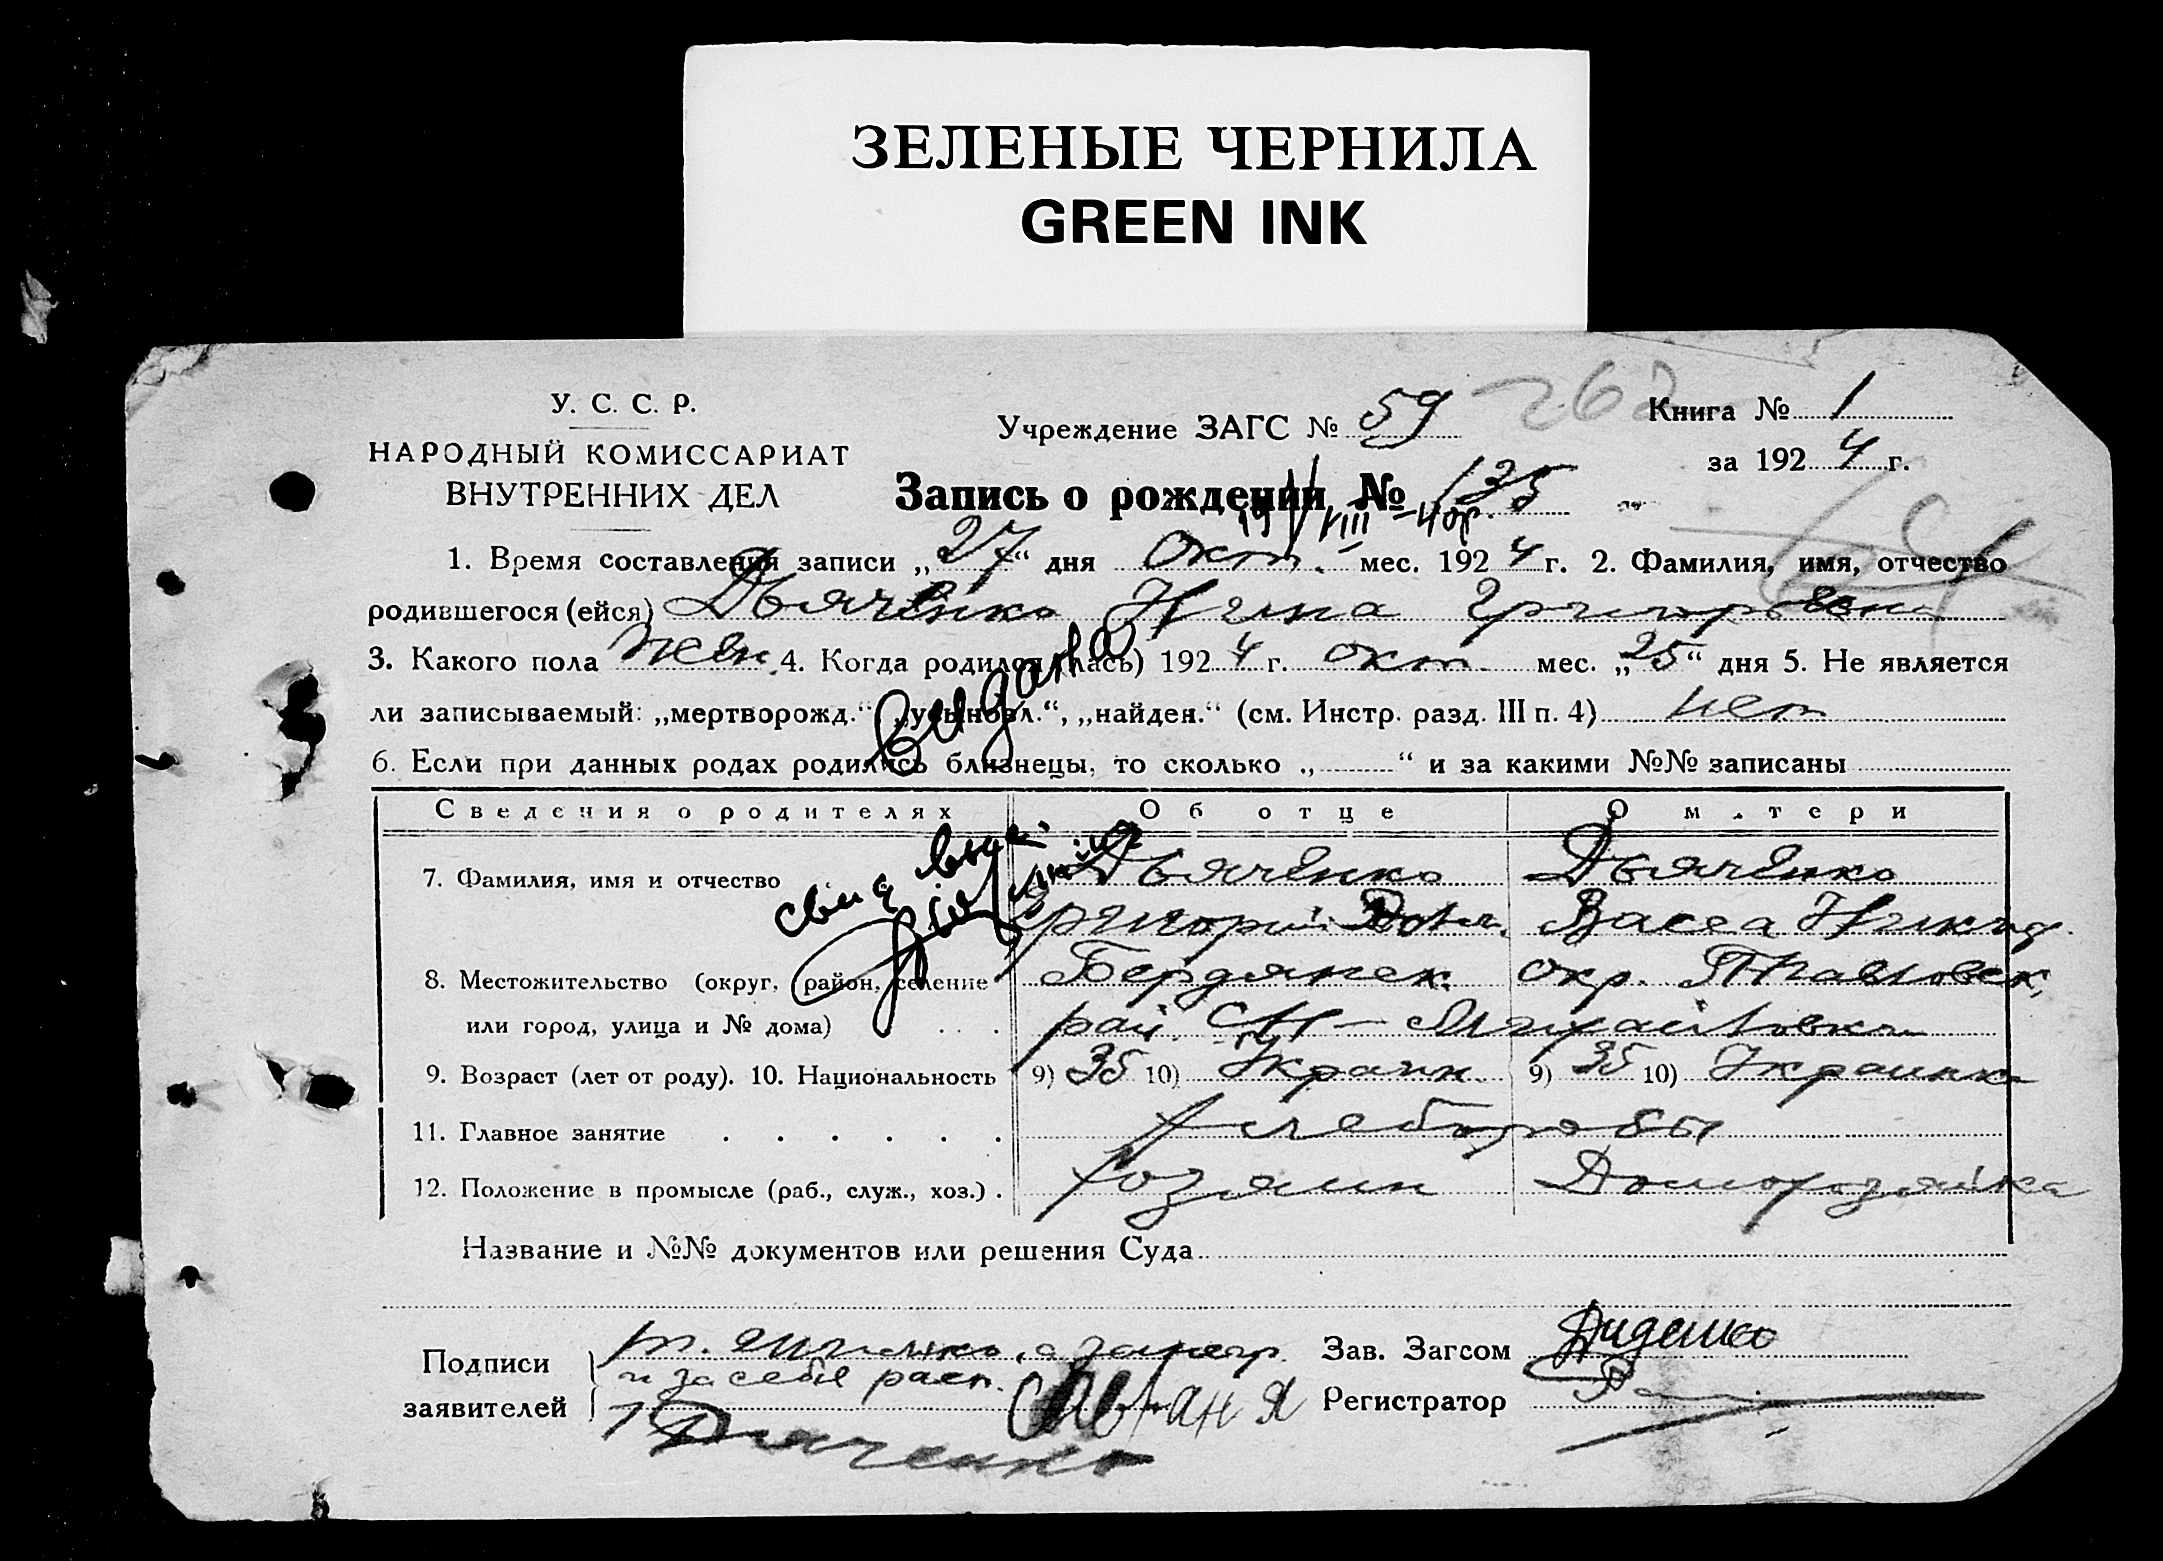 ЗЕЛЕНЫЕ ЧЕРНИЛА
GREEN INK
У. С. С. Р.
НАРОДНЫЙ КОМИССАРИАТ
ВНУТРЕННИХ ДЕЛ
Учреждение ЗАГС № 59
Книга № 1
за 1924 г.
Запись о рождении № 135
1. Время составления записи „27“ дня Окт. мес. 1924 г. 2. Фамилия, имя, отчество
родившегося (ейся) Дьяченко Нина Григорьевна
3. Какого пола жен. 4. Когда родился (лась) 1924 г. окт. мес. „25“ дня 5. Не является
ли записываемый: „мертворожд.“ „усыновл.“, „найден.“ (см. Инстр. разд. III п. 4) нет
6. Если при данных родах родились близнецы, то сколько „ “ и за какими №№ записаны
Сведения о родителях Об отце О матери
7. Фамилия, имя и отчество Дьяченко Дьяченко
Григорий Васса Никид.
8. Местожительство (округ, район, селение Бердянск. окр. Павловск.
или город, улица и № дома) рай. Михайловка
9. Возраст (лет от роду). 10. Национальность 9) 35 10) Украин. 9) 35 10) Украинка
11. Главное занятие Хлеборобы
12. Положение в промысле (раб., служ., хоз.) Хозяин Домохозяйка
Название и №№ документов или решения Суда
Подписи
заявителей
и за себя расп.
Дьяченко
Зав. Загсом Диденко
Регистратор